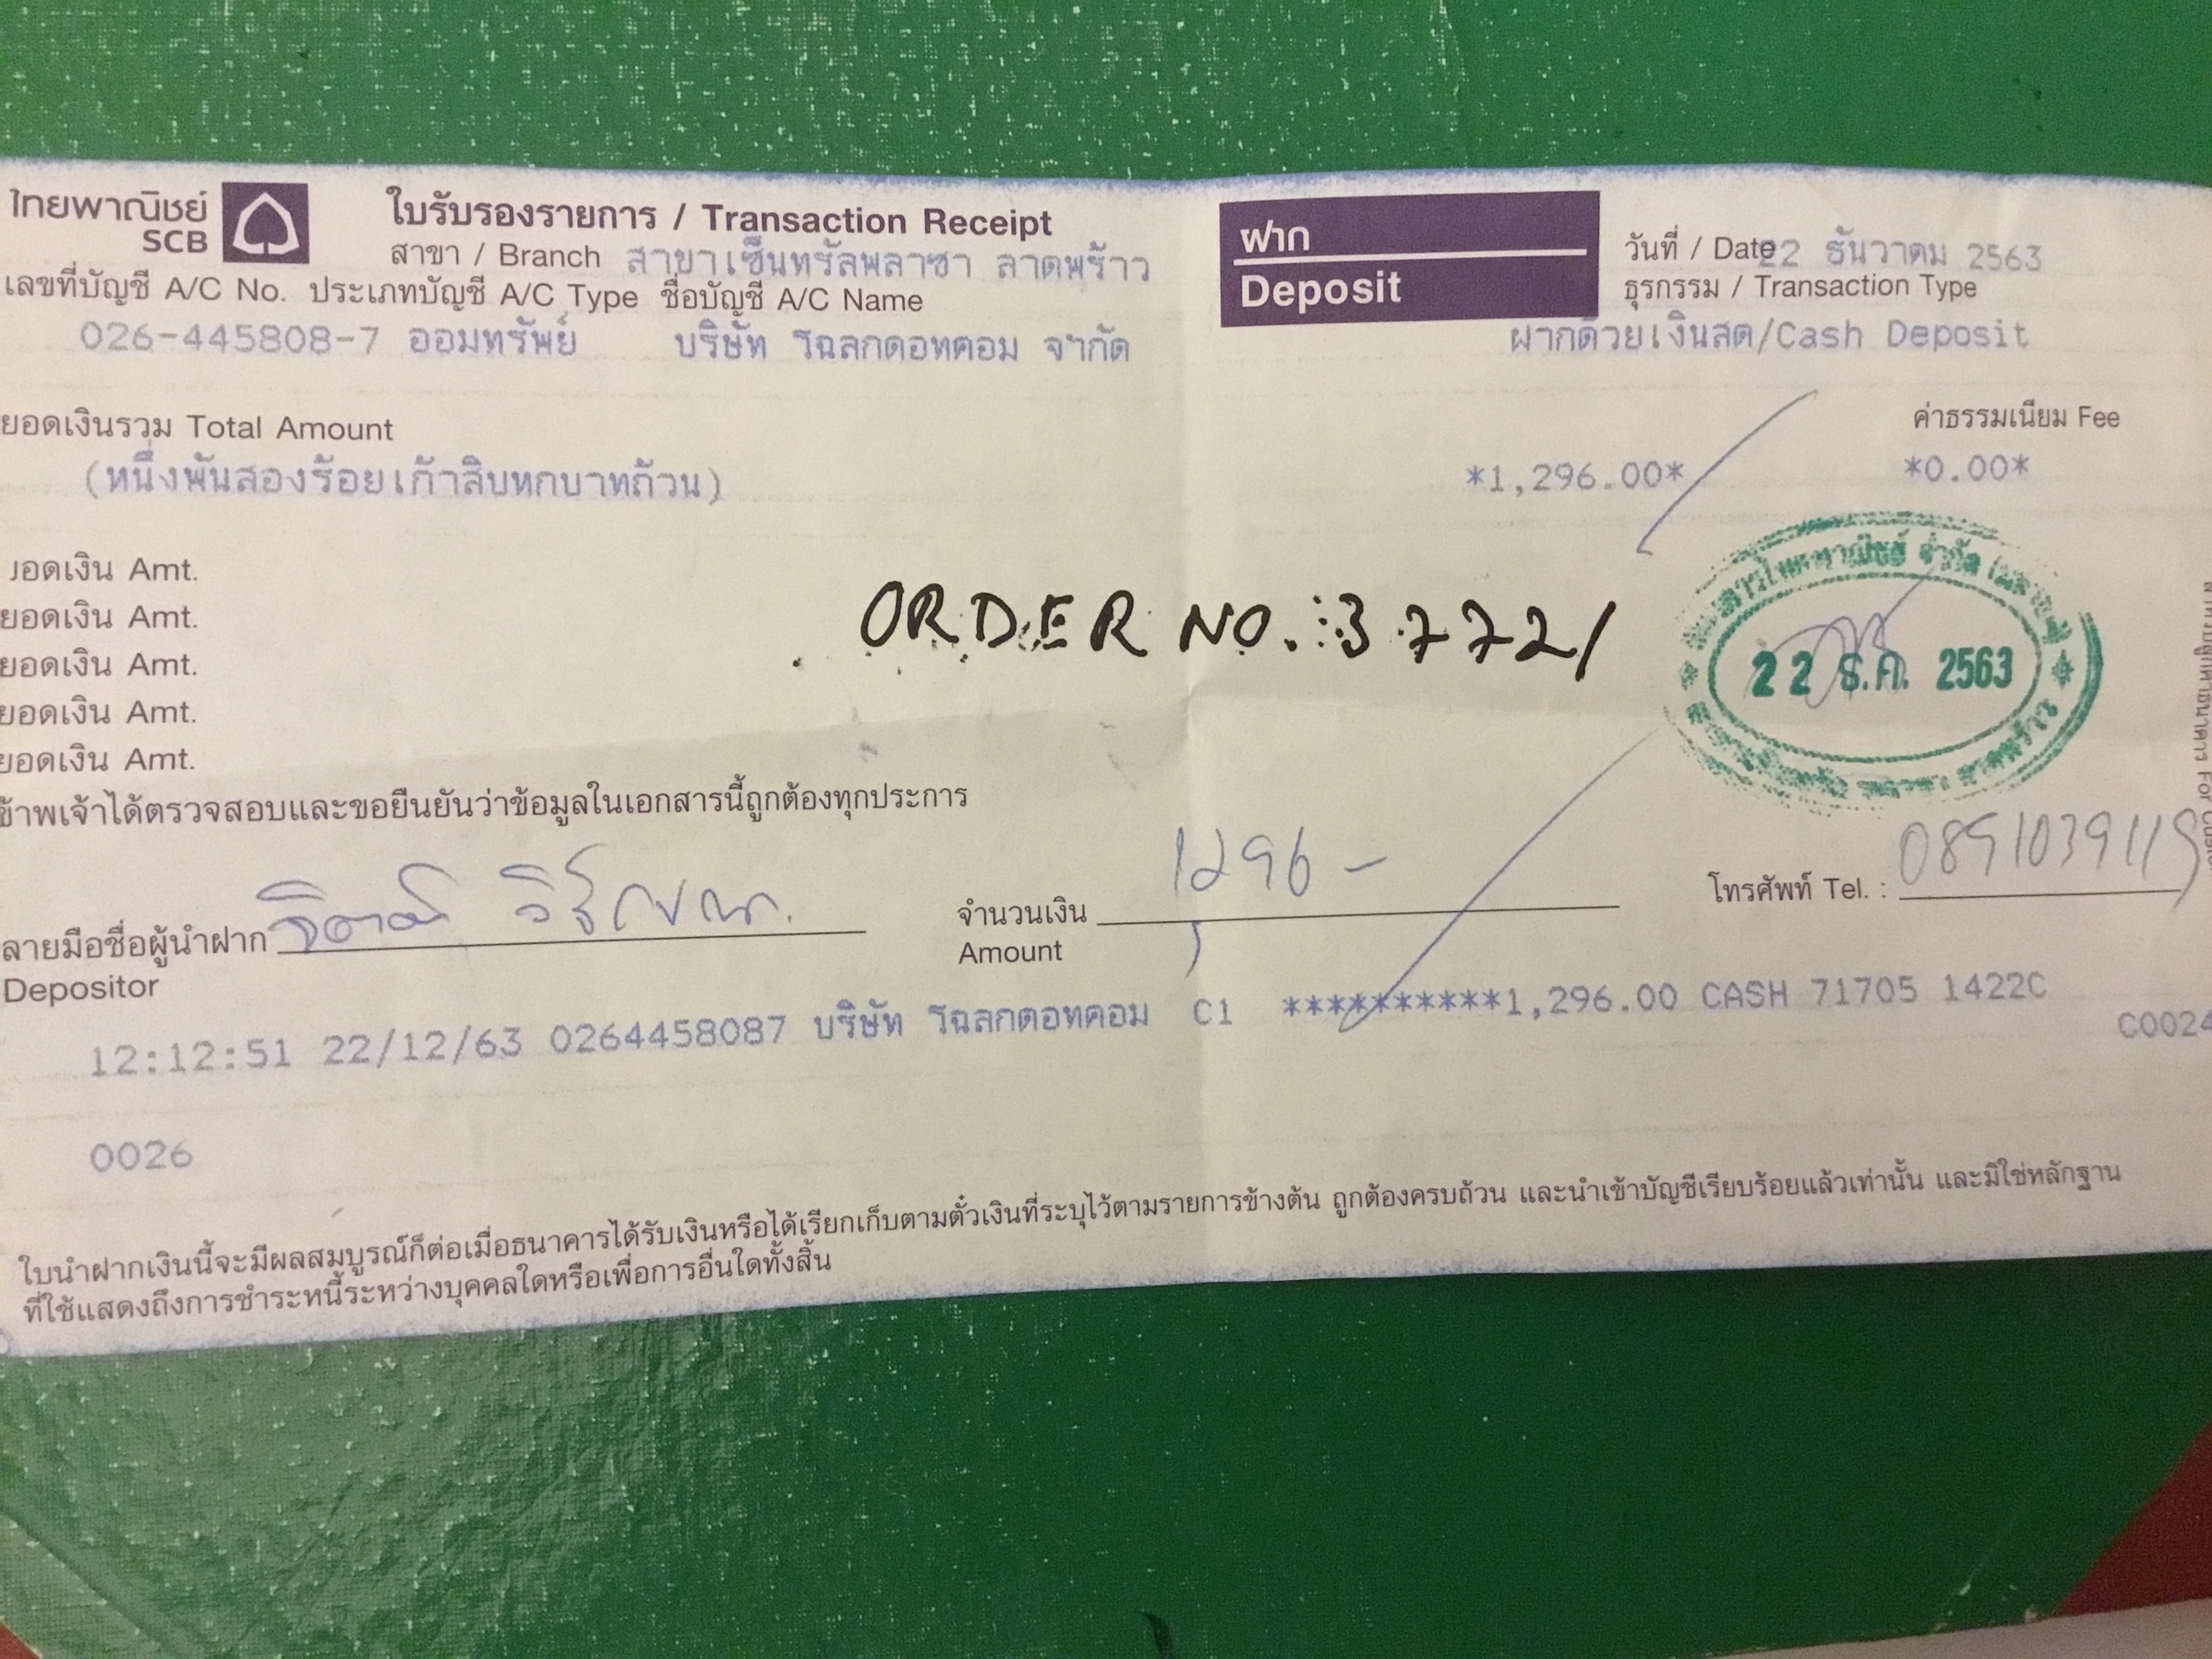 ไทยพาณิชย์
SCB
ใบรับรองรายการ / Transaction Receipt
สาขา / Branch สาขาเซ็นทรัลพลาซา ลาดพร้าว
ฝาก
Deposit
วันที่ / Date 22 ธันวาคม 2563
ธุรกรรม / Transaction Type
ฝากด้วยเงินสด/Cash Deposit
เลขที่บัญชี A/C No. ประเภทบัญชี A/C Type ชื่อบัญชี A/C Name
026-445808-7 ออมทรัพย์ บริษัท โฉลกดอทคอม จำกัด
ยอดเงินรวม Total Amount
ค่าธรรมเนียม Fee
(หนึ่งพันสองร้อยเก้าสิบหกบาทถ้วน) *1,296.00* *0.00*
ยอดเงิน Amt.
ยอดเงิน Amt.
ยอดเงิน Amt.
ยอดเงิน Amt.
ยอดเงิน Amt.
ORDER NO. : 37721
22 ธ.ค. 2563
ข้าพเจ้าได้ตรวจสอบและขอยืนยันว่าข้อมูลในเอกสารนี้ถูกต้องทุกประการ
ลายมือชื่อผู้นำฝาก
Depositor
จำนวนเงิน 1296 –
Amount
โทรศัพท์ Tel. : 0891039119
12:12:51 22/12/63 0264458087 บริษัท โฉลกดอทคอม C1 **********1,296.00 CASH 71705 1422C
C0024
0026
ใบนำฝากเงินนี้จะมีผลสมบูรณ์ก็ต่อเมื่อธนาคารได้รับเงินหรือได้เรียกเก็บตามตั๋วเงินที่ระบุไว้ตามรายการข้างต้น ถูกต้องครบถ้วน และนำเข้าบัญชีเรียบร้อยแล้วเท่านั้น และมิใช่หลักฐาน
ที่ใช้แสดงถึงการชำระหนี้ระหว่างบุคคลใดหรือเพื่อการอื่นใดทั้งสิ้น